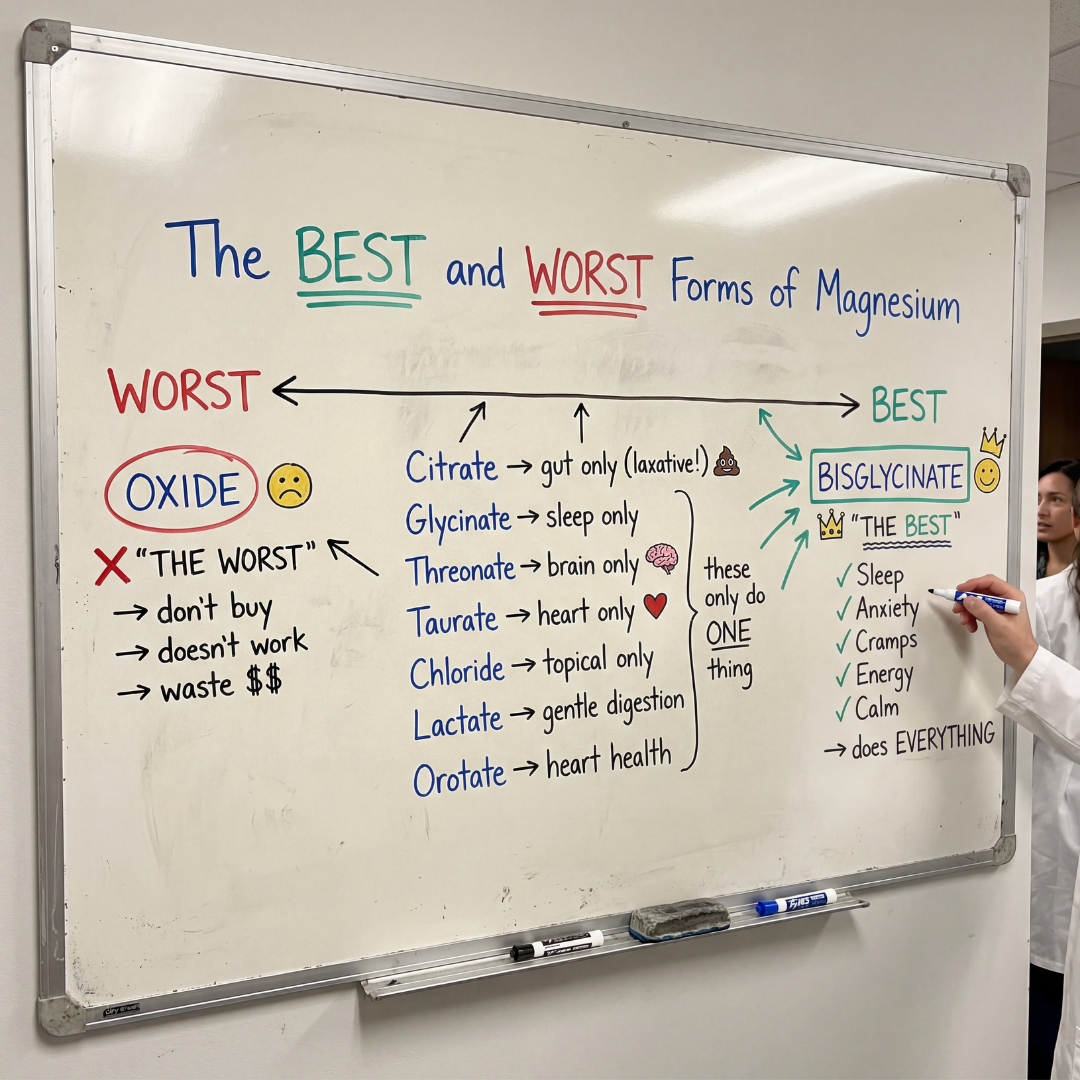 The BEST and WORST Forms of Magnesium
WORST
BEST
OXIDE
"THE WORST"
→ don't buy
→ doesn't work
→ waste $$
Citrate → gut only (laxative!)
Glycinate → sleep only
Threonate → brain only
Taurate → heart only
Chloride → topical only
Lactate → gentle digestion
Orotate → heart health
these
only do
ONE
thing
BISGLYCINATE
"THE BEST"
✓ Sleep
✓ Anxiety
✓ Cramps
✓ Energy
✓ Calm
→ does EVERYTHING